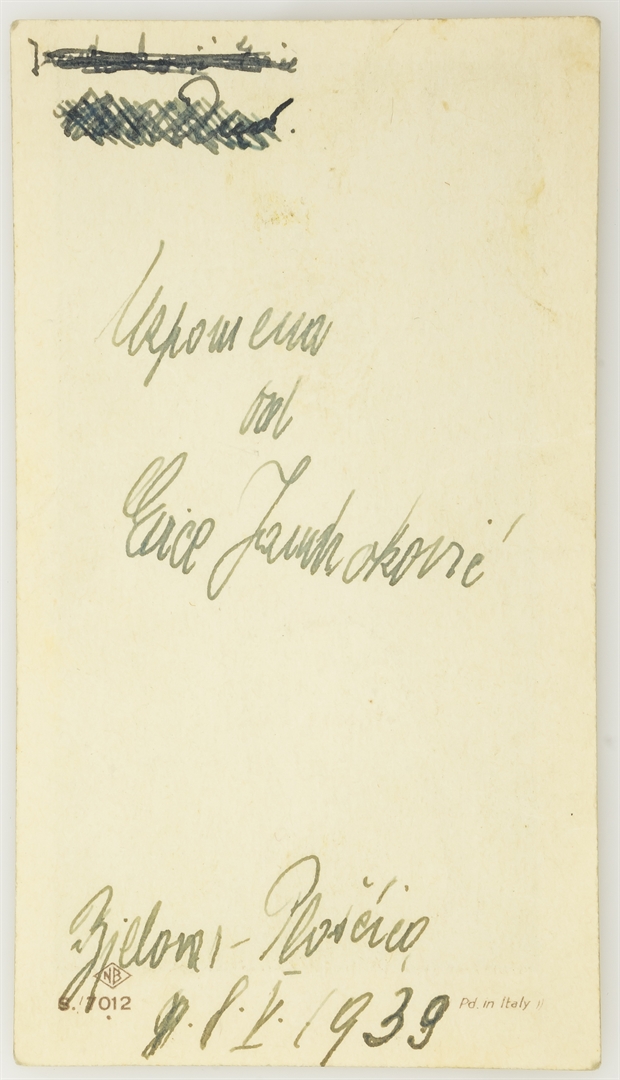 Uspomena
od
Evice Jambroković
Bjelovar - Ploščica
NB
S./7012
8. V. 1939
Pd. in Italy